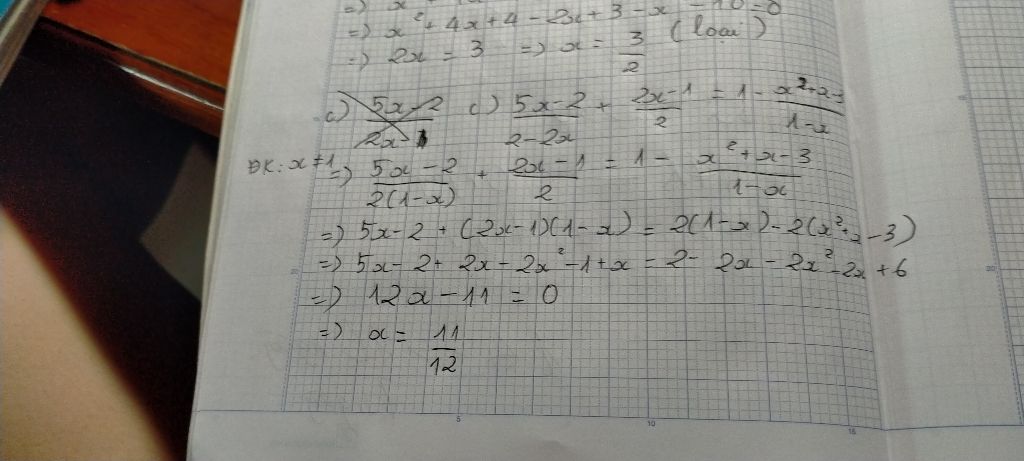 =) x
=) x² + 4x + 4 - 2x + 3 - x - 10 = 0
=) 2x = 3 =) x = 3/2 (loại)
c) 5x-2/2x-1 c) 5x-2/2-2x + 2x-1/2 = 1 - x²+x-3/1-x
ĐK: x ≠ 1 =) 5x-2/2(1-x) + 2x-1/2 = 1 - x²+x-3/1-x
=) 5x-2 + (2x-1)(1-x) = 2(1-x) - 2(x²+x-3)
=) 5x-2 + 2x - 2x² - 1 + x = 2 - 2x - 2x² - 2x + 6
=) 12x - 11 = 0
=) x = 11/12
5 10 15